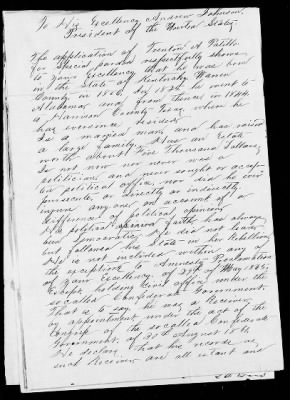 To His Excellency Andrew Johnson,
President of the United States
The application of Trenton A Patillo
for special pardon respectfully shows
to your Excellency that he was born
in the State of Kentucky Warren
County in 1816, In 18 he moved to
Alabama and from thence in 1844
to Harrison County Texas where he
has ever since resided
Is a married man, and has raised
a large family. Has an Estate
worth about Five Thousand Dollars,
Is not now nor never was a
politician, and never sought or accep-
ted political office, nor did he ever
persecute, or directly or indirectly
injure any one on account of a
difference of political opinion
His political faith has always
been Democratic, He did not leave
but followed his State in her Rebellion,
He is not included within any of
the exceptions to Amnesty Proclamation
of your Excellency, of 29th of May 1865;
except holding Civil office under the
socalled Confederate Government.
That is to say, he was a Receiver
by appointment under the act of the
Congress of the socalled Confederate
Government, of 30th August 1861
He declares that his records as
such Receiver are all intact and